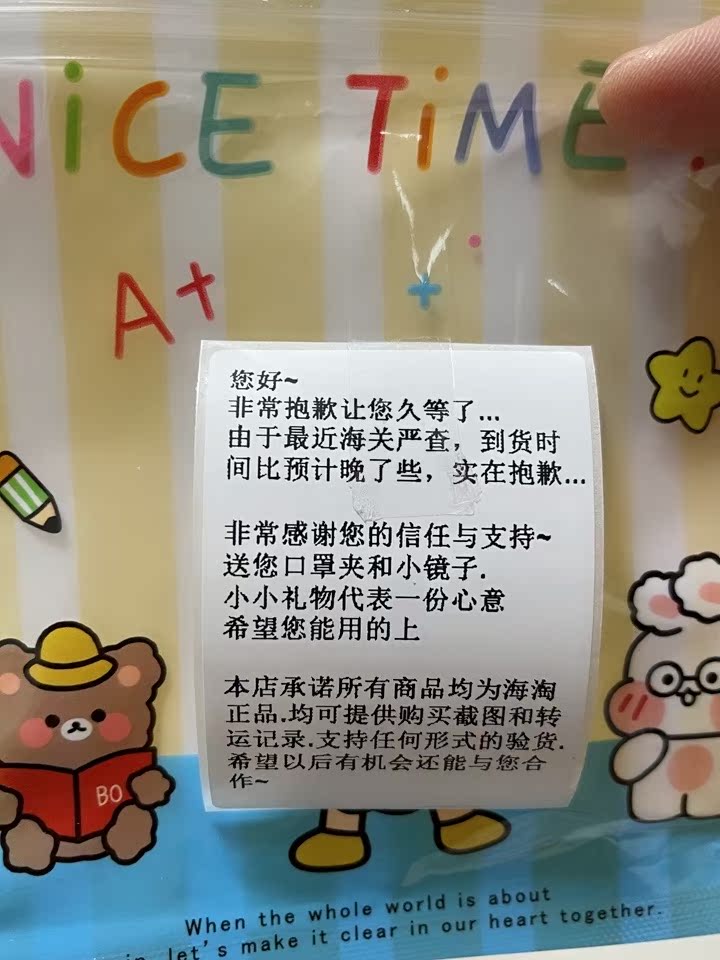 NiCE TiME
A+
您好~
非常抱歉让您久等了...
由于最近海关严查，到货时
间比预计晚了些，实在抱歉...
非常感谢您的信任与支持~
送您口罩夹和小镜子.
小小礼物代表一份心意
希望您能用的上
本店承诺所有商品均为海淘
正品.均可提供购买截图和转
运记录.支持任何形式的验货.
希望以后有机会还能与您合
作~
BO
When the whole world is about
let's make it clear in our heart together.